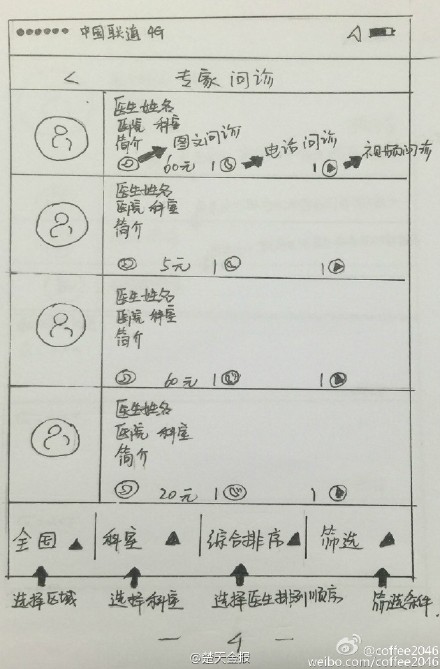 中国联通 4G
< 专家问诊
医生姓名
医院 科室
简介
图文问诊 60元 | 电话问诊 | 视频问诊
医生姓名
医院 科室
简介
5元 | |
医生姓名
医院 科室
简介
60元 | |
医生姓名
医院 科室
简介
20元 | |
全国 科室 综合排序 筛选
选择区域 选择科室 选择医生排列顺序 筛选条件
— 4 —
@楚天金报
@coffee2046
weibo.com/coffee2046